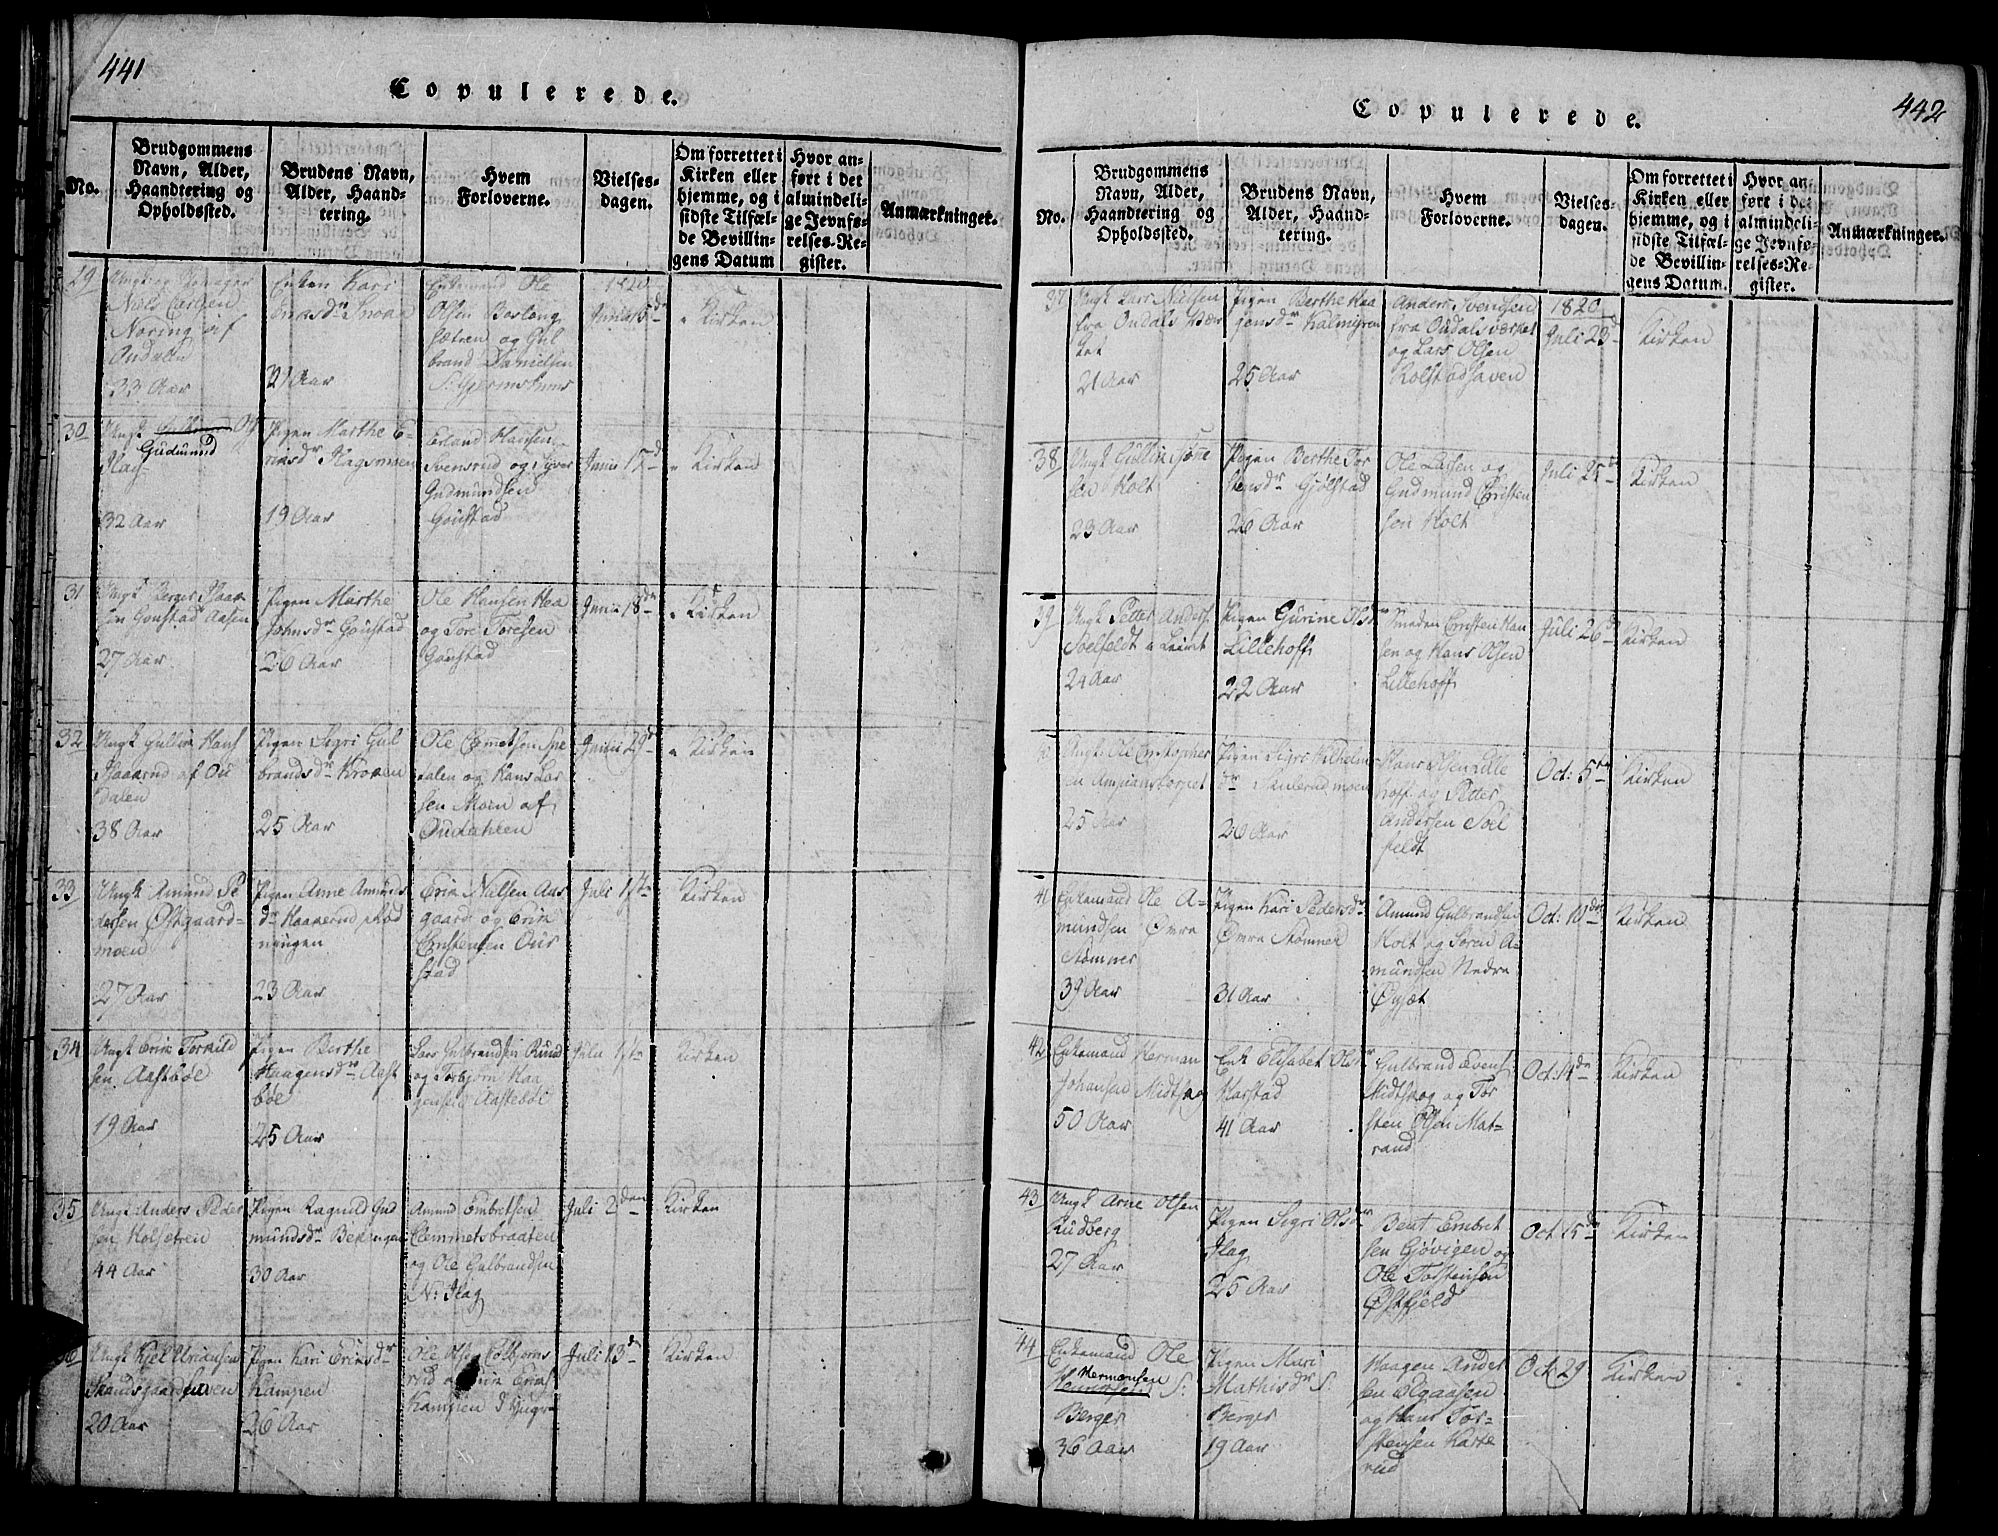 441
Copulerede.
No.
Brudgommens
Navn, Alder,
Haandtering og
Opholdssted.
Brudens Navn,
Alder, Haand-
tering.
Hvem
Forloverne.
Vielses-
dagen.
Om forrettet i
Kirken eller
hjemme, og i
sidste Tilfæl-
de Bevillin-
gens Datum
Hvor an-
ført i det
almindeli-
ge Jevnfø-
relses-Re-
gister.
Anmærkninger.
29
Niels
Noring af
33 Aar
Enken Kari
21 Aar
Enkemand Ole
Olsen
sætren og Gul
brand Danielsen
1820
Kirken
30
Ungk
Gudmund
32 Aar
Pigen Marthe E-
19 Aar
Erland Hansen
Svensrud og Syver
Gudmundsen
Goustad
Junii 15d
Kirken
31
27 Aar
Pigen Marthe
Johnsdr Goustad
26 Aar
Ole Hansen Haa
og Tore Toresen
Goustad
Junii 18de
Kirken
32
Ungk Gullik Hans
af Ou
dalen
38 Aar
Pigen Sigri Gul
brandsdr Kroken
25 Aar
Ole
og Hans Lar
sen Moen af
Oudahlen
Junii 29d
Kirken
33
Ungk Amund Pe
dersen Østgaard-
moen
27 Aar
Pigen Anne Amunds
dr
ningen
23 Aar
Erik Nielsen Aas
gaard og Erik
Christensen Our
stad
Juli 1ste
Kirken
34
Ungk Erik Torkild
sen Aastebøe
19 Aar
Pigen Berthe
Haagensdr Aast
bøe
25 Aar
Lars Gulbrandsen Rund
og Torbjørn Haa
gensen Aastebøl
Juli 1ste
Kirken
35
Ungk Anders Peder
sen Holsetren
44 Aar
Pigen Ragnild Gud
mundsdr
30 Aar
Amund Embretsen
Clemmetsbraaten
og Ole Gulbrandsen
N: Hag
Juli 2den
Kirken
Ungk Kjel
20 Aar
Pigen Kari Eriksdr
Kampen
26 Aar
Ole Olsen
Kampen
Juli 13d
Kirken
442
Copulerede.
No.
Brudgommens
Navn, Alder,
Haandtering og
Opholdssted.
Brudens Navn,
Alder, Haand-
tering.
Hvem
Forloverne.
Vielses-
dagen.
Om forrettet i
Kirken eller
hjemme, og i
sidste Tilfæl-
de Bevillin-
gens Datum.
Hvor an-
ført i det
almindeli-
ge Jevnfø-
relses-Re-
gister.
Anmærkninger.
37
Ungk Lars Nielsen
fra Oudals Vær
ket
21 Aar
Pigen Berthe Haa
gensdr Kalmigren
25 Aar
Anders Svendsen
fra Oudalsværket
og Lars Olsen
Rolstadhaven
1820
Juli 23d
Kirken
38
Ungk Gullik
sen Holt
23 Aar
Pigen Berthe Tor
stensdr Gjølstad
26 Aar
Ole Larsen og
Gudmund Christen
sen Holt
Juli 25de
Kirken
39
Ungk Petter Anders
Soelfeldt
24 Aar
Pigen Gurine Olsdr
Lillehoff
22 Aar
Smeden Christen Han
sen og Hans Olsen
Lillehoff
Juli 26d
Kirken
Ungk Ole Christopher
sen Ampianstorpet
25 Aar
Pigen Sigri Wilhelm
dr
26 Aar
Hans Olsen Lille
hoff og Petter
Andersen Soel
feldt
Oct: 5te
Kirken
41
Enkemand Ole A-
mundsen Øvre
Stommer
39 Aar
Pigen Kari Pedersdr
Øvre Stommer
31 Aar
Amund Gulbrandsen
Holt og Søren A-
mundsen Nedre
Øyset
Oct: 10de
Kirken
42
Enkemand Herman
Johansen Midtskog
50 Aar
Enk Elisabet Olsdr
Harstad
41 Aar
Gulbrand Evens
Midtskog og Tor
sten Olsen Mat-
rand
Oct: 14de
Kirken
43
Ungk Arne Olsen
Rudberg
27 Aar
Pigen Sigri Olsdr
Hag
25 Aar
Bent Embret
sen Gjøvigen og
Ole Torstensen
Østfjeld
Oct 15de
Kirken
44
Enkemand Ole
Hermansen
S:
Berger
36 Aar
Pigen Mari
Mathisdr S:
Berger
19 Aar
Haagen Ander
sen Ølgaasen
og Hans Tor-
stensen Kaste
rud
Oct: 29
Kirken